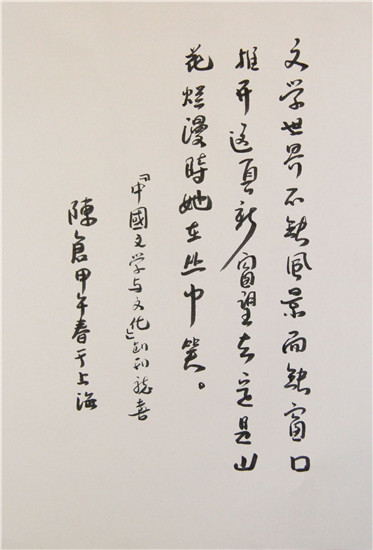 文学世界不缺風景而缺窗口
推开这頁新窗望去定是山
花烂漫時她在丛中笑。
「中國文学与文化」创刊誌喜
陳倉甲午春于上海